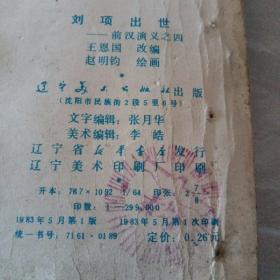 刘项出世
——前汉演义之四
王恩国 改编
赵明钧 绘画
辽宁美术出版社出版
(沈阳市民族街2段5里6号)
文字编辑:张月华
美术编辑:李皓
辽宁省新华书店发行
辽宁美术印刷厂印刷
开本:787×1092 1/64 印张:2 7/8
印数:1—299,000
1983年5月第1版 1983年5月第1次印刷
统一书号:7161·0189 定价:0.26元